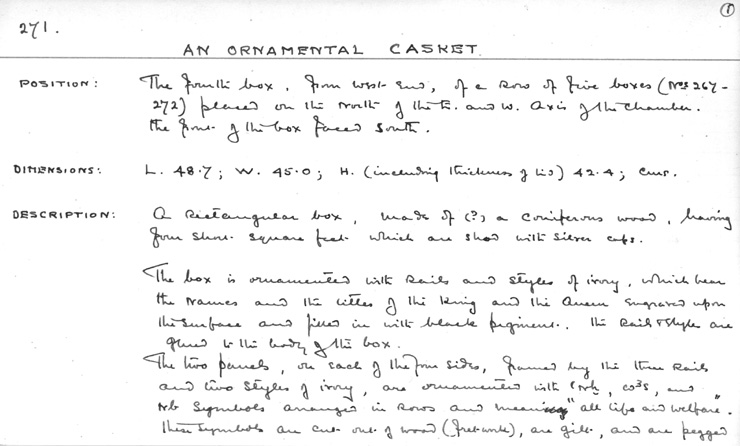 ①
271.
AN ORNAMENTAL CASKET.
POSITION: The fourth box, from West End, of a row of five boxes (Nos 267-
272) placed on the North of the E. and W. Axis of the chamber.
The front of the box faced South.
DIMENSIONS: L. 48.7; W. 45.0; H. (including thickness of lid) 42.4; cms.
DESCRIPTION: A Rectangular box, made of (?) a coniferous wood, having
four short square feet which are shod with silver caps.
The box is ornamented with rails and styles of ivory, which bear
the names and the titles of the King and the Queen engraved upon
the surface and filled in with black pigment. The Rails & styles are
glued to the body of the box.
The two panels, on each of the four sides, framed by the three rails
and two styles of ivory, are ornamented with "nh, w3s, and
nb symbols arranged in rows and meaning "all life and welfare".
These symbols are cut out of wood (fretwork), are gilt, and are pegged